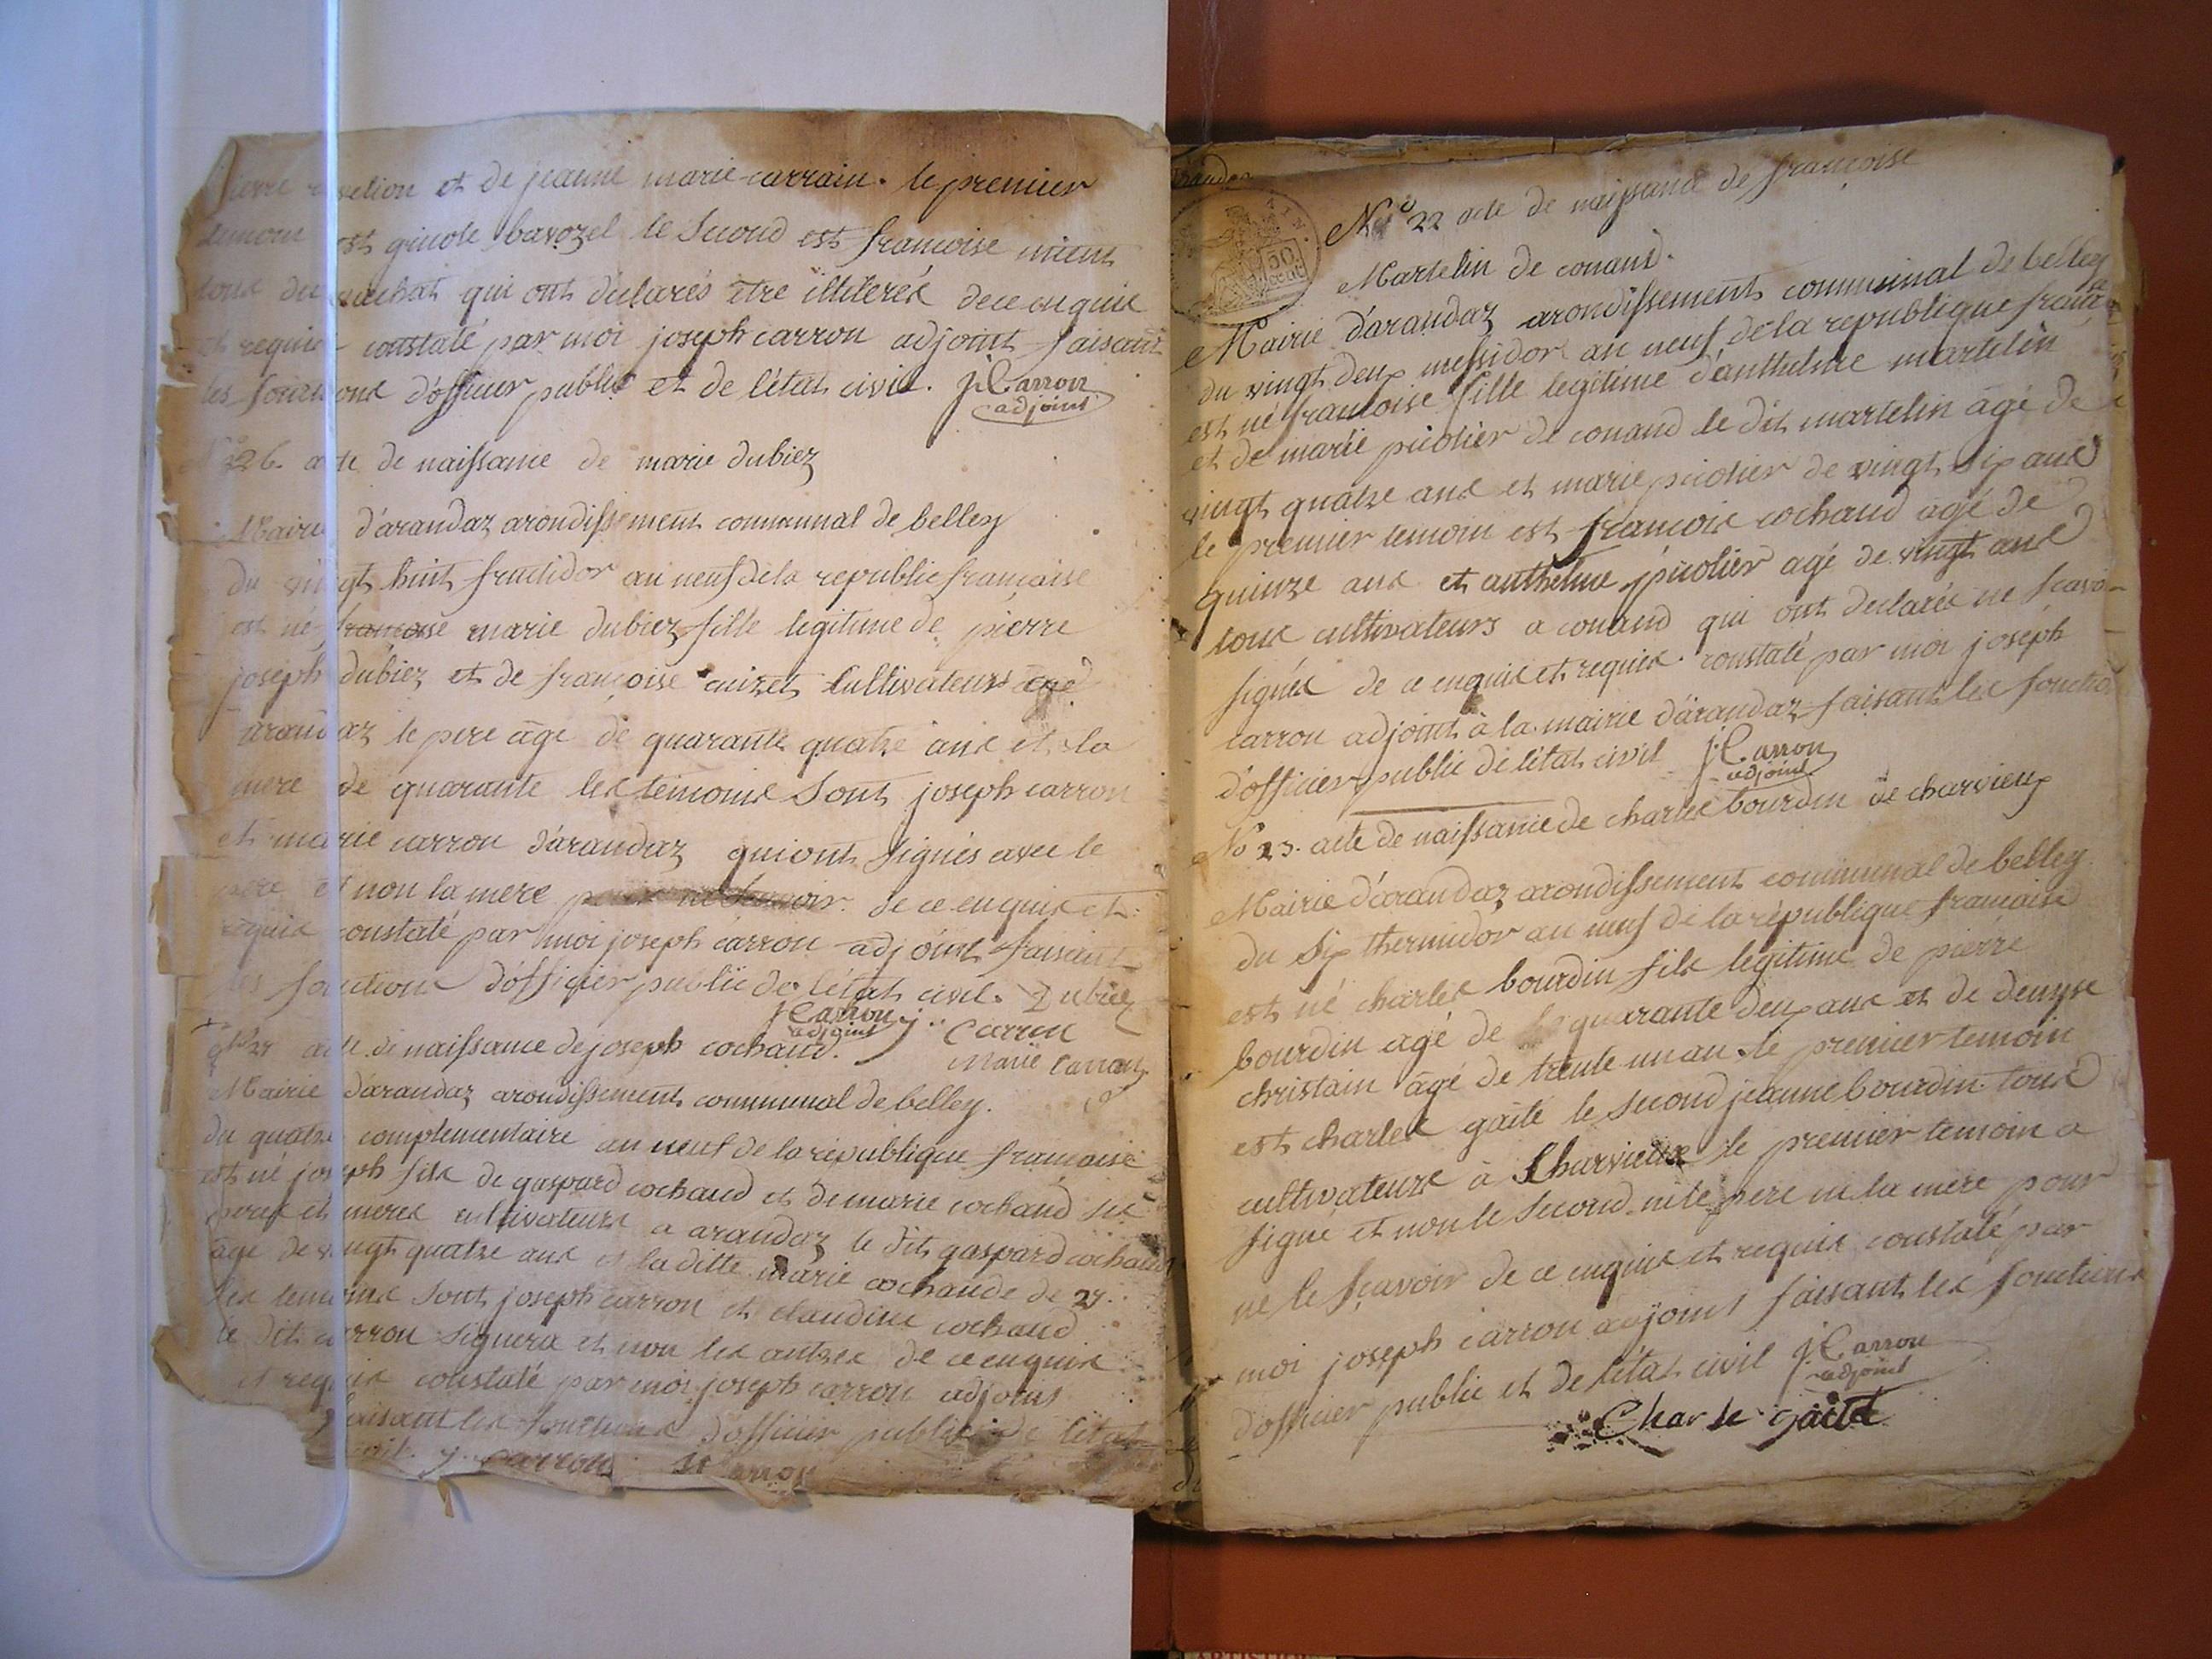 pierre et de jeanne marie carrain. le premier
temoin est ginole bavozel le second est francoise
tous du qui ont déclarés être illiterés de ce enquis
et requis constaté par moi joseph carron adjoint faisant
les fonctions d'officier public et de l'état civil. J. Carron
adjoint
N° 26. acte de naissance de marie dubiez
Mairie d'arandaz arondissement communal de belley
du vingt huit fructidor an neuf de la republic francaise
est né francoise marie dubiez fille legitime de pierre
joseph dubiez et de francoise cuizet cultivateurs
arandaz le pere âgé de quarante quatre ans et la
mere de quarante les temoins sont joseph carron
et marie carron d'arandaz qui ont signés avec le
pere et non la mere de ce enquis et
requis constaté par moi joseph carron adjoint faisant
les fonctions d'officier public de l'état civil. Dubiez
J Carron adjoint j.. Carron
acte de naissance de joseph cochaud. Marie Carron
Mairie d'arandaz arondissement communal de belley.
du quatre complementaire an neuf de la république francaise
est né joseph fils de gaspard cochaud et de marie cochaud ses
peres et meres cultivateurs a arandaz le dit gaspard cochaud
âgé de vingt quatre ans et la ditte marie cochaude de 27.
les temoins sont joseph carron et claudine cochaud
le dit carron signera et non les autres de ce enquis
et requis constaté par moi joseph carron adjoint
faisant les fonctions d'officier public de l'état
civil. j. carron
arandaz
50
N° 22 acte de naissance de françoise
Martelin de conand.
Mairie d'arandaz arondissement communal de belley
du vingt deux messidor an neuf de la republique franc
est né francoise fille legitime d'anthelme martelin
et de marie picolier de conand le dit martelin âgé de
vingt quatre ans et marie picolier de vingt six ans
le premier temoin est francois cochaud âgé de
quinze ans et anthelme picolier agé de vingt ans
tous cultivateurs a conand qui ont declarés ne scavo
signés de ce enquis et requis. constaté par moi joseph
carron adjoint à la mairie d'arandaz faisant les foncti
d'officier public de l'état civil J. Carron
adjoint
No 23. acte de naissance de charles bourdin de charvieux
Mairie d'arandaz arondissement communal de belley
du six thermidor an neuf de la république francaise
est né charles bourdin fils legitime de pierre
bourdin agé de quarante deux ans et de denyse
christain âgé de trente un an. le premier temoin
est charles gaite le second jeanne bourdin tous
cultivateurs à Charvieux le premier temoin a
signé et non le second ni le pere ni la mere pour
ne le scavoir de ce enquis et requis constaté par
moi joseph carron adjoint faisant les fonctions
d'officier public et de l'état civil J. Carron
adjoint
Charle gaité